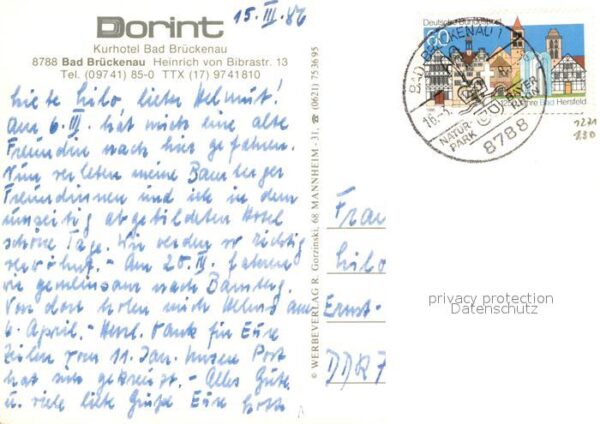 Dorint
Kurhotel Bad Brückenau
8788 Bad Brückenau Heinrich von Bibrastr. 13
Tel. (09741) 85-0 TTX (17) 9741810
15. III. 86
Liebe Lilo, lieber Helmut!
Am 6. III. hat mich eine alte
Freundin nach hier gefahren.
Nun verleben meine Bamberger
Freundinnen und ich in dem
umseitig abgebildeten Hotel
schöne Tage. Wir werden so richtig
verwöhnt. - Am 20. III. fahren
wir gemeinsam nach Bamberg.
Von dort holen mich Helms am
6. April. - Herzl. Dank für Eure
Zeilen vom 11. Jan. Unsere Post
hat sich gekreuzt. - Alles Gute
u. viele liebe Grüße Eure
© WERBEVERLAG R. Gorzinski, 68 MANNHEIM - 31, ☎ (0621) 753695
Deutsche Bundespost
60
1250 Jahre Bad Hersfeld
BAD BRÜCKENAU 1
16.-3.
NATUR-
PARK
BAYER.
RHÖN
8788
1.80
Frau
Lilo
Ernst-
DDR 7
privacy protection
Datenschutz